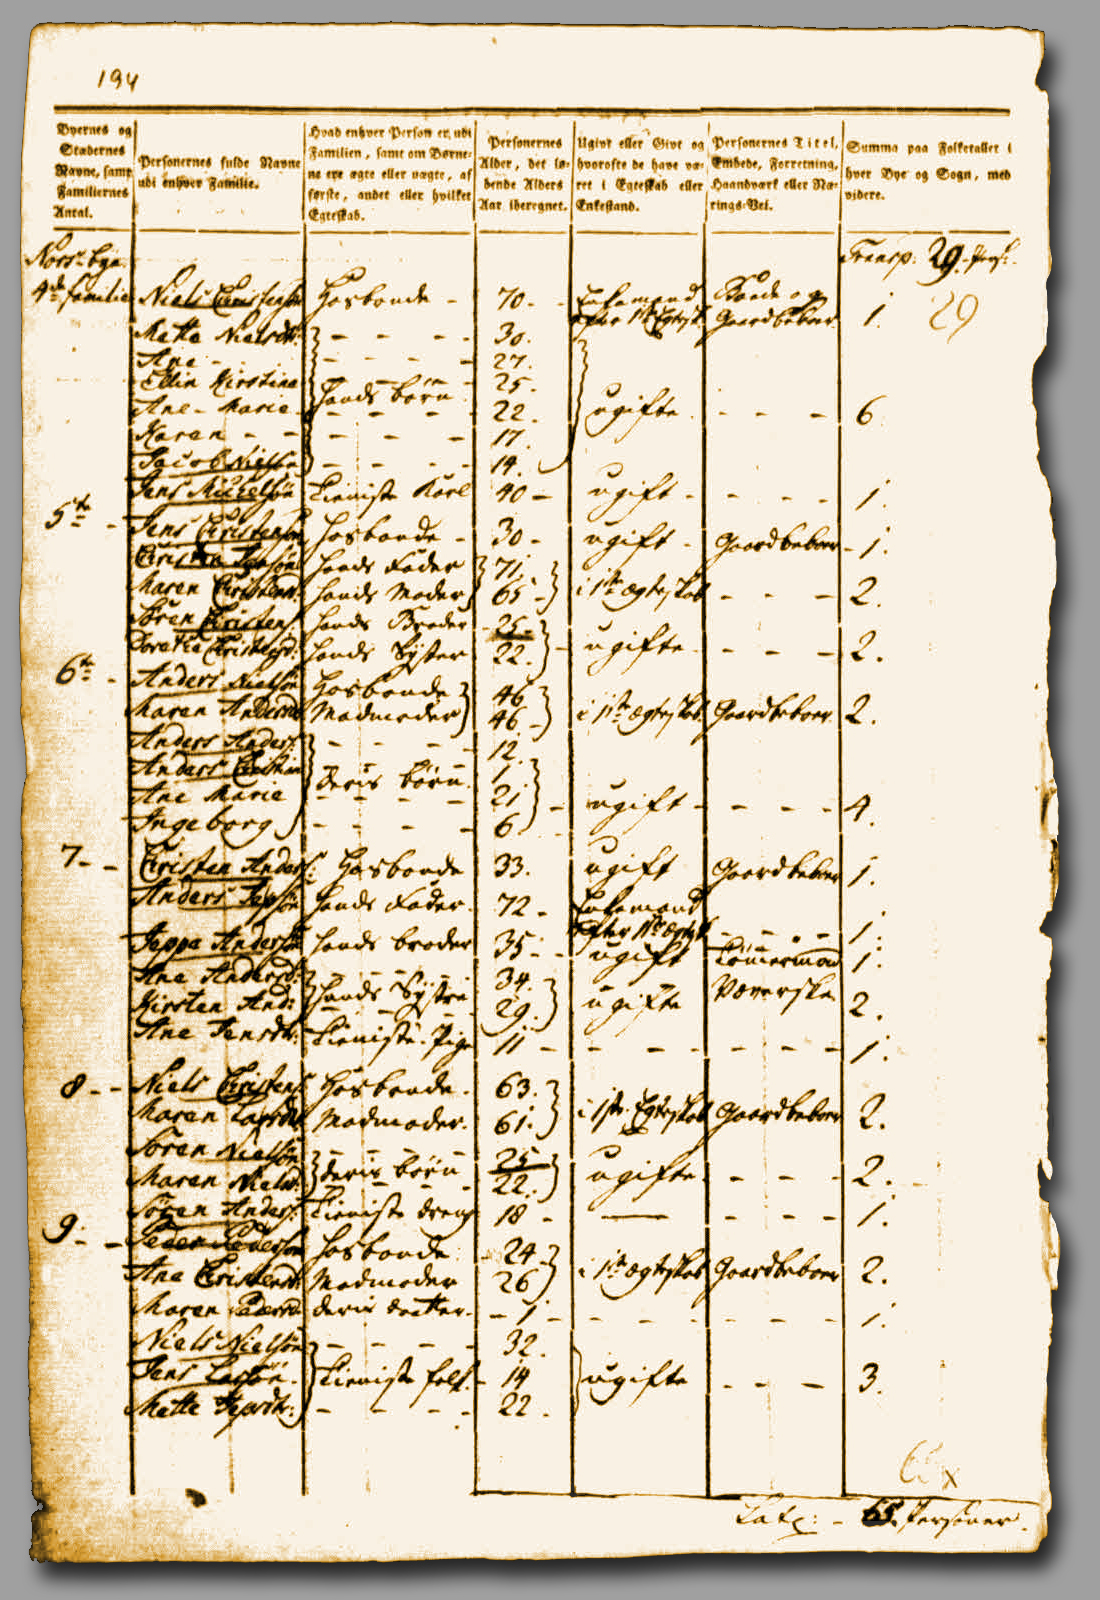 194
Byernes og Stædernes Navne, samt Familiernes Antal.
Personernes fulde Navne udi enhver Familie.
Hvad enhver Person er udi Familien, samt om Børnene ere ægte eller uægte, af første, andet eller hvilket Egteskab.
Personernes Alder, det løbende Alders Aar iberegnet.
Ugivt eller Givt og hvorofte de have været i Egteskab eller Enkestand.
Personernes Titel, Embede, Forretning, Haandværk eller Nærings-Vei.
Summa paa Folketallet i hver Bye og Sogn, med videre.
Transp: 29
4de familie Niels Christensøn Hosbonde - 70 - Enkemand efter 1ste Egtesk. Bonde og Gaardbeboer 1.
29
Mette Nielsdtr: - - - - 30.
Ane - - - - - - 27.
Ellin Kirstine - - - - 25.
Ane - Marie - hands børn 22. ugifte - - - 6
Karen - - - - - - 17.
Jacob Nielsøn - - - - 14.
Jens Michelsøn Tieniste Karl 40 - ugift - - - - 1.
5te - Jens Christensøn Hosbonde - 30 - ugift - Gaardbeboer - 1.
Christen Jepsøn hands Fader 71.
Maren Christensd. hands Moder 65 - i 1ste ægteskab - - - 2.
Søren Christens. hands Broder 25 -
Doretha Christensd: hands Syster 22. - ugifte - - - - 2.
6te - Anders Nielsøn Hosbonde 46
Maren Andersd Madmoder 46. - i 1ste ægteskab. Gaardbeboer 2.
Anders Anders: - - - - 12.
Anders Christian deris børn 1
Ane Marie - - - - 21 - ugift - - - - 4.
Ingeborg - - - - 6
7 - - Christen Anders: Hosbonde 33. ugift Gaardbeboer 1.
Anders Jepsøn hands Fader. 72 - Enkemand efter 1ste Ægtesk. - - - - 1.
Jeppe Andersøn hands broder 35 - - ugift Tømmermand 1.
Ane Andersd: - - - - 34.
Kirsten And: hands Systre 29. ugifte Væverske 2.
Ane Jensdtr: Tieniste-Pige 11 - - - - - - 1.
8 - - Niels Christens. Hosbonde - 63.
Maren Larsdtr Madmoder. 61. i 1ste Egteskab Gaardbeboer 2.
Søren Nielsøn - - - - 25
Maren Nielsd. deris børn 22. ugifte. - - - 2.
Søren Anders: Tieniste dreng 18 - - - - - 1.
9. - - Peder Pedersøn Hosbonde 24 -
Ane Christensd: Madmoder 26 i 1ste ægteskab Gaardbeboer 2.
Maren Pedersd deris datter. - 1 - - - - - - 1.
Niels Nielsøn - - - - 32.
Jens Larsøn. Tieniste folk. - 14 ugifte - - - 3.
Mette Jepsdtr: - - - - 22 -
65 x
Lat: - 65. Personer.